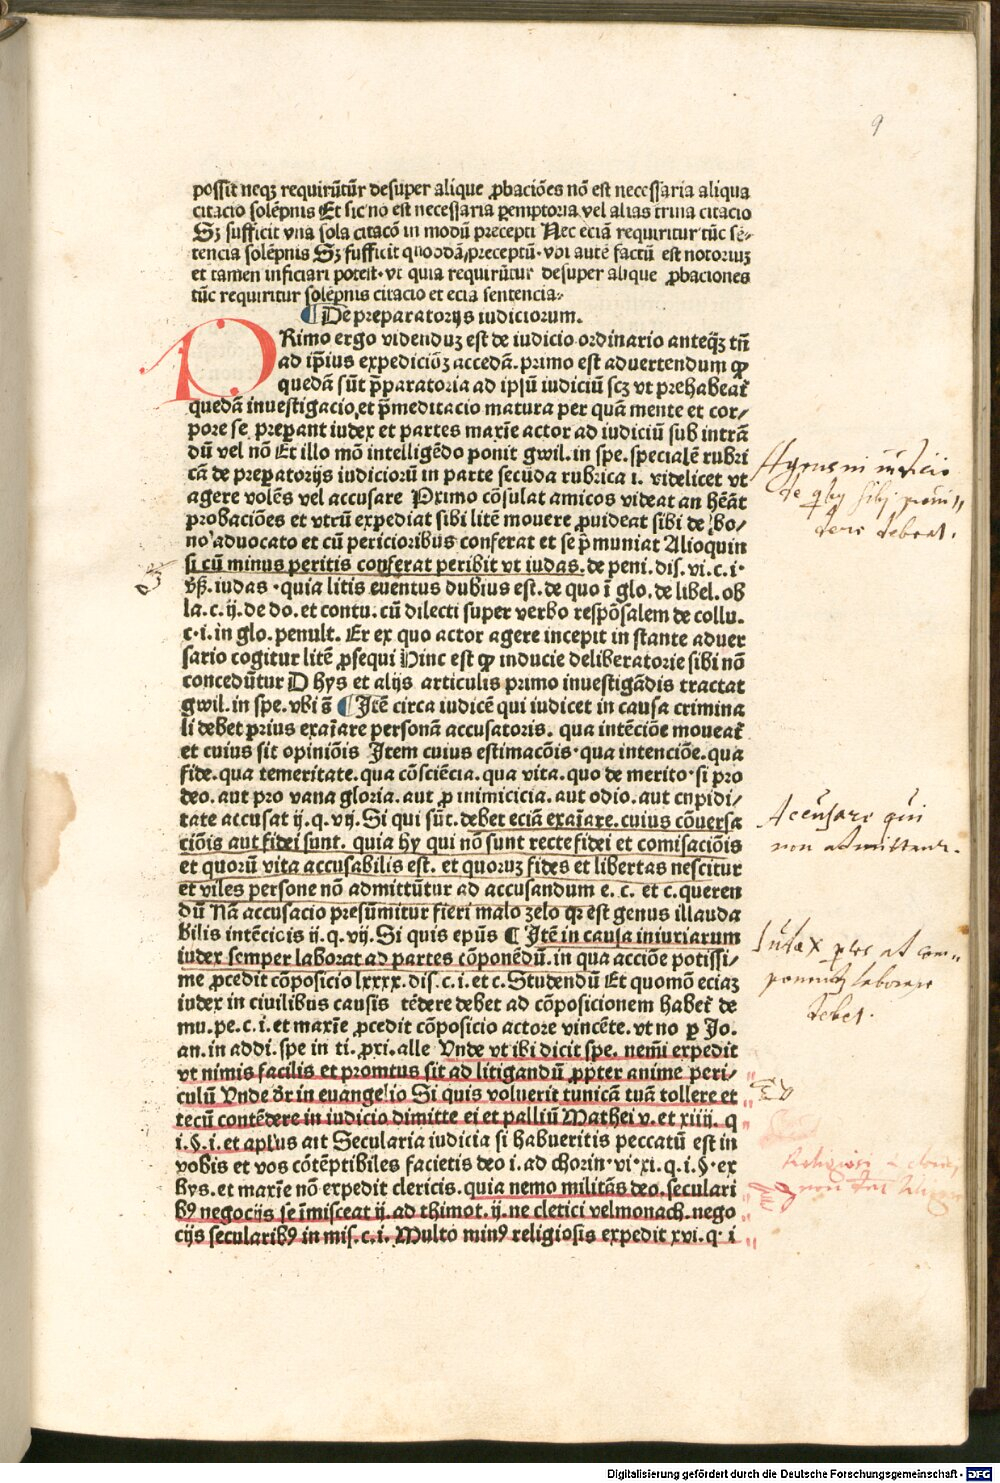 9
possit neqꝫ requirūtūr desuper alique ꝓbaciōes nō est necessaria aliqua
citacio solēpnis Et sic no est necessaria ꝑemptoria vel alias trina citacio
Sꝫ sufficit vna sola citacō in modū precepti Nec eciā requiritur tūc sē⸗
tencia solēpnis Sꝫ sufficit quoddā preceptū· vbi autē factū est notoriuꝫ
et tamen inficiari poteit· vt quia requirūtur desuper alique ꝓbaciones
tūc requiritur solēpnis citacio et ecia sentencia⸗
¶ De preparatorijs iudiciorum.
PRimo ergo videnduꝫ est de iudicio ordinario anteqꝫ tn̄
ad ip̄ius expediciōꝫ accedā. primo est advertendum ꝙ
quedā sūt p̄paratoria ad ipsū iudiciū scꝫ vt prehabeat̄
quedā inuestigacio et p̄meditacio matura per quā mente et cor⸗
pore se preꝑant iudex et partes maxīe actor ad iudiciū sub intrā
dū vel nō Et illo mō intelligēdo ponit gwil. in spe. specialē rubri
cā de preꝑatorijs iudiciorū in parte secūda rubrica i. videlicet vt
agere volēs vel accusare Primo cōsulat amicos videat an hēat
probaciōes et vtrū expediat sibi litē mouere ꝓuideat sibi de bo⸗
no aduocato et cū pericioribus conferat et se p̄muniat Alioquin
si cū minus peritis conferat peribit vt iudas. de peni. dis. vi. c. i·
vꝭ. iudas · quia litis euentus dubius est. de quo ī glo. de libel. ob
la. c. ij. de do. et contu. cū dilecti super verbo respōsalem de collu.
c· i. in glo. penult. Er ex quo actor agere incepit in stante aduer
sario cogitur litē ꝓsequi Hinc est ꝙ inducie deliberatorie sibi nō
concedūtur D hys et alijs articulis primo inuestigādis tractat
gwil. in spe. vbi s̄ ¶ Itē circa iudicē qui iudicet in causa crimina
li debet prius exaīare personā accusatoris. qua intēciōe moueat̄
et cuius sit opiniōis Item cuius estimacōis· qua intenciōe. qua
fide. qua temeritate. qua cōsciēcia. qua vita. quo de merito· si pro
deo. aut pro vana gloria. aut ꝓ inimicicia. aut odio. aut cupidi⸗
tate accusat ij. q. vij. Si qui sūt. debet eciā exaīare. cuius cōuersa
ciōis aut fidei sunt. quia hy qui nō sunt recte fidei et comisaciōis
et quorū vita accusabilis est. et quoruꝫ fides et libertas nescitur
et viles persone nō admittūtur ad accusandum e. c. et c. queren
dū Nā accusacio presūmitur fieri malo zelo qꝛ est genus illauda
bilis intēciōis ij. q. vij. Si quis epūs ¶ Itē in causa iniuriarum
iudex semper laborat ad partes cōponēdū. in qua acciōe potissi⸗
me ꝓcedit cōposicio lxxxx. dis. c. i. et c. Studendū Et quomō eciaꝫ
iudex in ciuilibus causis tēdere debet ad cōposicionem habet̄ de
mu. pe. c. i. et maxīe ꝓcedit cōposicio actore vincēte. vt no ꝑ Jo.
an. in addi. spe in ti. ꝓxi. alle Vnde vt ibi dicit spe. nemī expedit
vt nimis facilis et promtus sit ad litigandū ꝓpter anime peri⸗
culū Vnde dr̄ in euangelio Si quis voluerit tunicā tuā tollere et
tecū contēdere in iudicio dimitte ei et palliū Mathei v. et xiiij. q
i. §. i. et apl'us ait Secularia iudicia si habueritis peccatū est in
vobis et vos cōtēptibiles facietis deo i. ad chorin· vi· xi. q. i. §· ex
hys. et maxīe nō expedit clericis. quia nemo militās deo. seculari
bꝰ negocijs se īmisceat ij. ad thimot. ij. ne cletici vel monach. nego
cijs secularibꝰ in mis. c. i. Multo minꝰ religiosis expedit xvi. q· i
debent.
Accusare qui
non admittunt.
Iudex
laborare
debet.
Digitalisierung gefördert durch die Deutsche Forschungsgemeinschaft - DFG